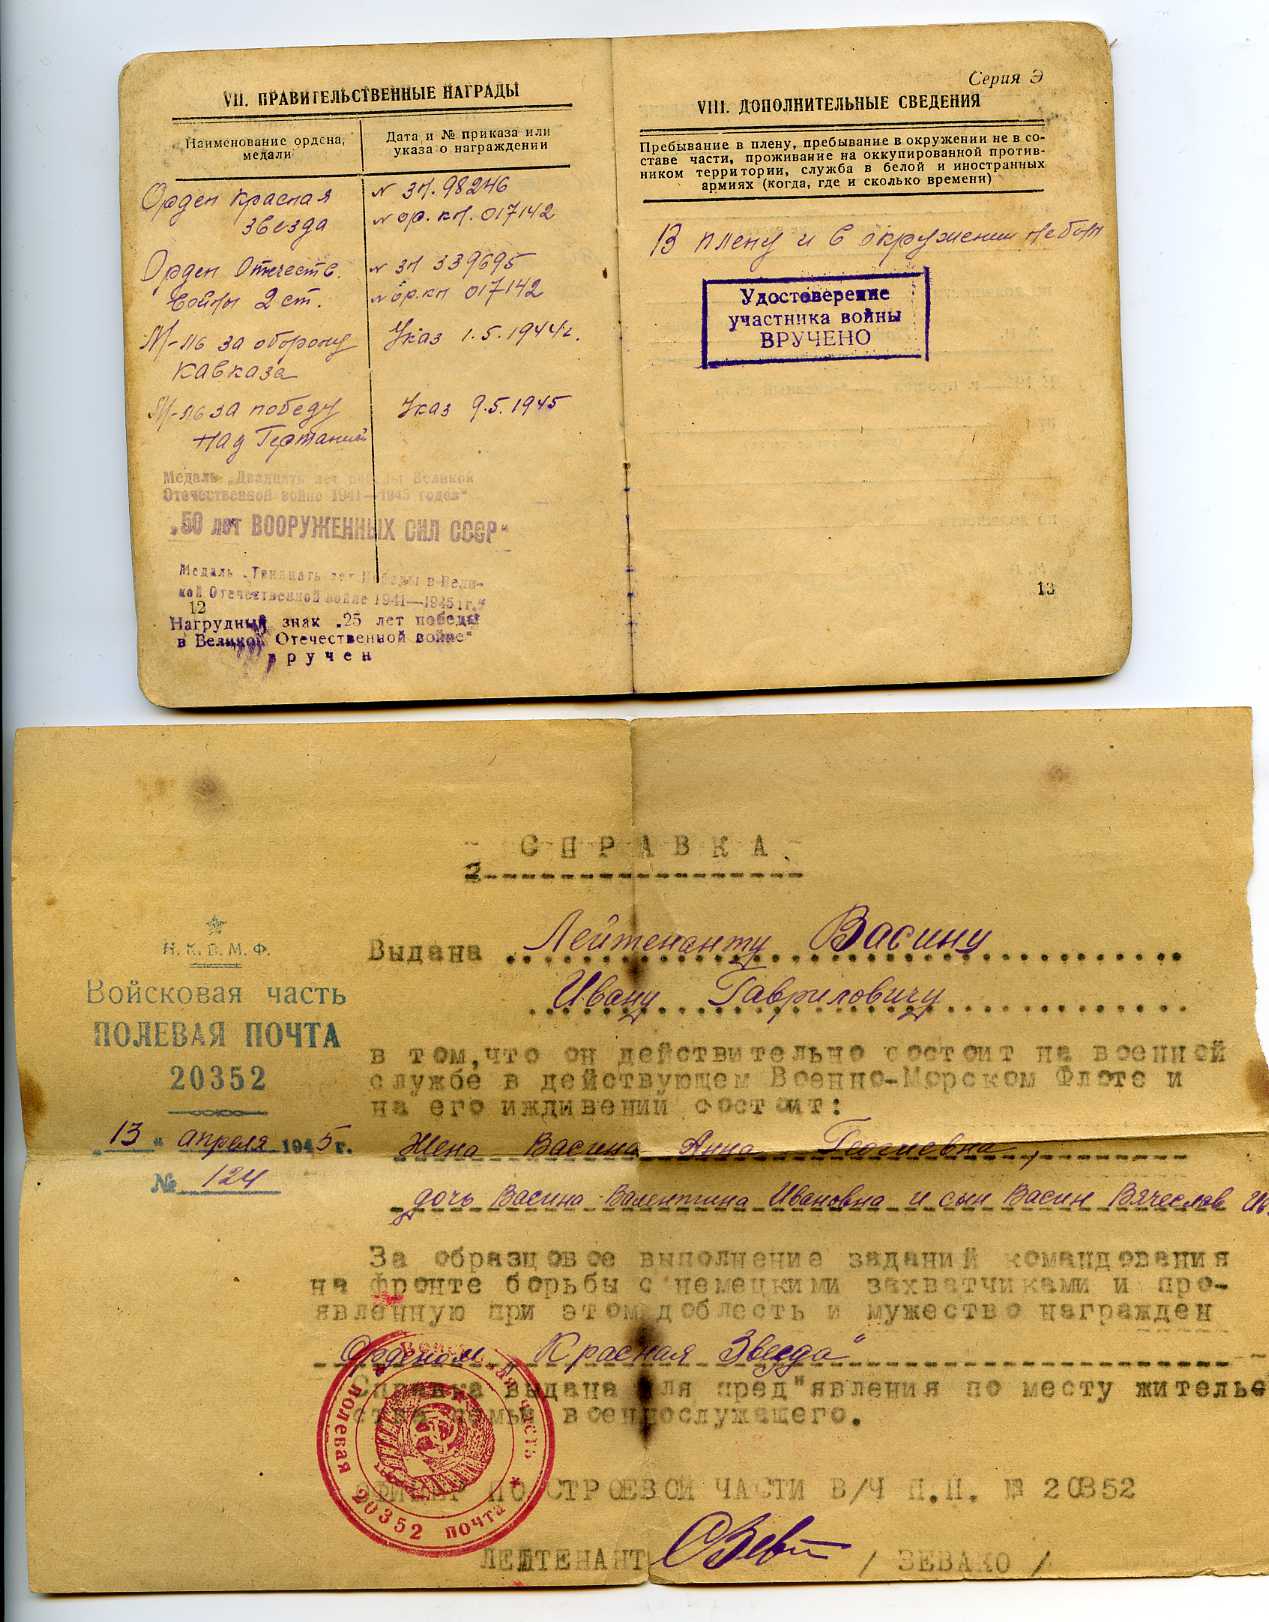 VII. ПРАВИТЕЛЬСТВЕННЫЕ НАГРАДЫ
Наименование ордена, медали
Дата и № приказа или указа о награждении
Орден Красная звезда
№ зн. 98246
№ ор. кн. 017142
Орден Отечеств. войны 2 ст.
№ зн 339695
№ ор. кн 017142
М-ль за оборону Кавказа
Указ 1.5.1944г.
М-ль за победу над Германией
Указ 9.5.1945
Медаль „Двадцать лет победы Великой
Отечественной войне 1941—1945 годов"
„50 лет ВООРУЖЕННЫХ СИЛ СССР"
Медаль „Тридцать лет Победы в Вели-
кой Отечественной войне 1941—1945 гг."
12
Нагрудный знак „25 лет победы
в Великой Отечественной войне"
вручен
Серия Э
VIII. ДОПОЛНИТЕЛЬНЫЕ СВЕДЕНИЯ
Пребывание в плену, пребывание в окружении не в со-
ставе части, проживание на оккупированной против-
ником территории, служба в белой и иностранных
армиях (когда, где и сколько времени)
В плену и в окружении не был
Удостоверение
участника войны
ВРУЧЕНО
13
СПРАВКА
Н.К.В.М.Ф.
Войсковая часть
ПОЛЕВАЯ ПОЧТА
20352
„13" апреля 1945 г.
№ 124
Выдана Лейтенанту Васину
Ивану Гавриловичу
в том, что он действительно состоит на военной
службе в действующем Военно-Морском Флоте и
на его иждивении состоит:
Жена Васина Анна
дочь Васина Валентина Ивановна и сын Васин Вячеслав Ив.
За образцовое выполнение заданий командования
на фронте борьбы с немецкими захватчиками и про-
явленную при этом доблесть и мужество награжден
Орденом „Красная Звезда"
Справка выдана для пред"явления по месту житель-
ства семьи военнослужащего.
ОФИЦЕР ПО СТРОЕВОЙ ЧАСТИ В/Ч П.П. № 20352
ЛЕЙТЕНАНТ / ЗЕВАКО /
Войсковая часть
полевая почта 20352